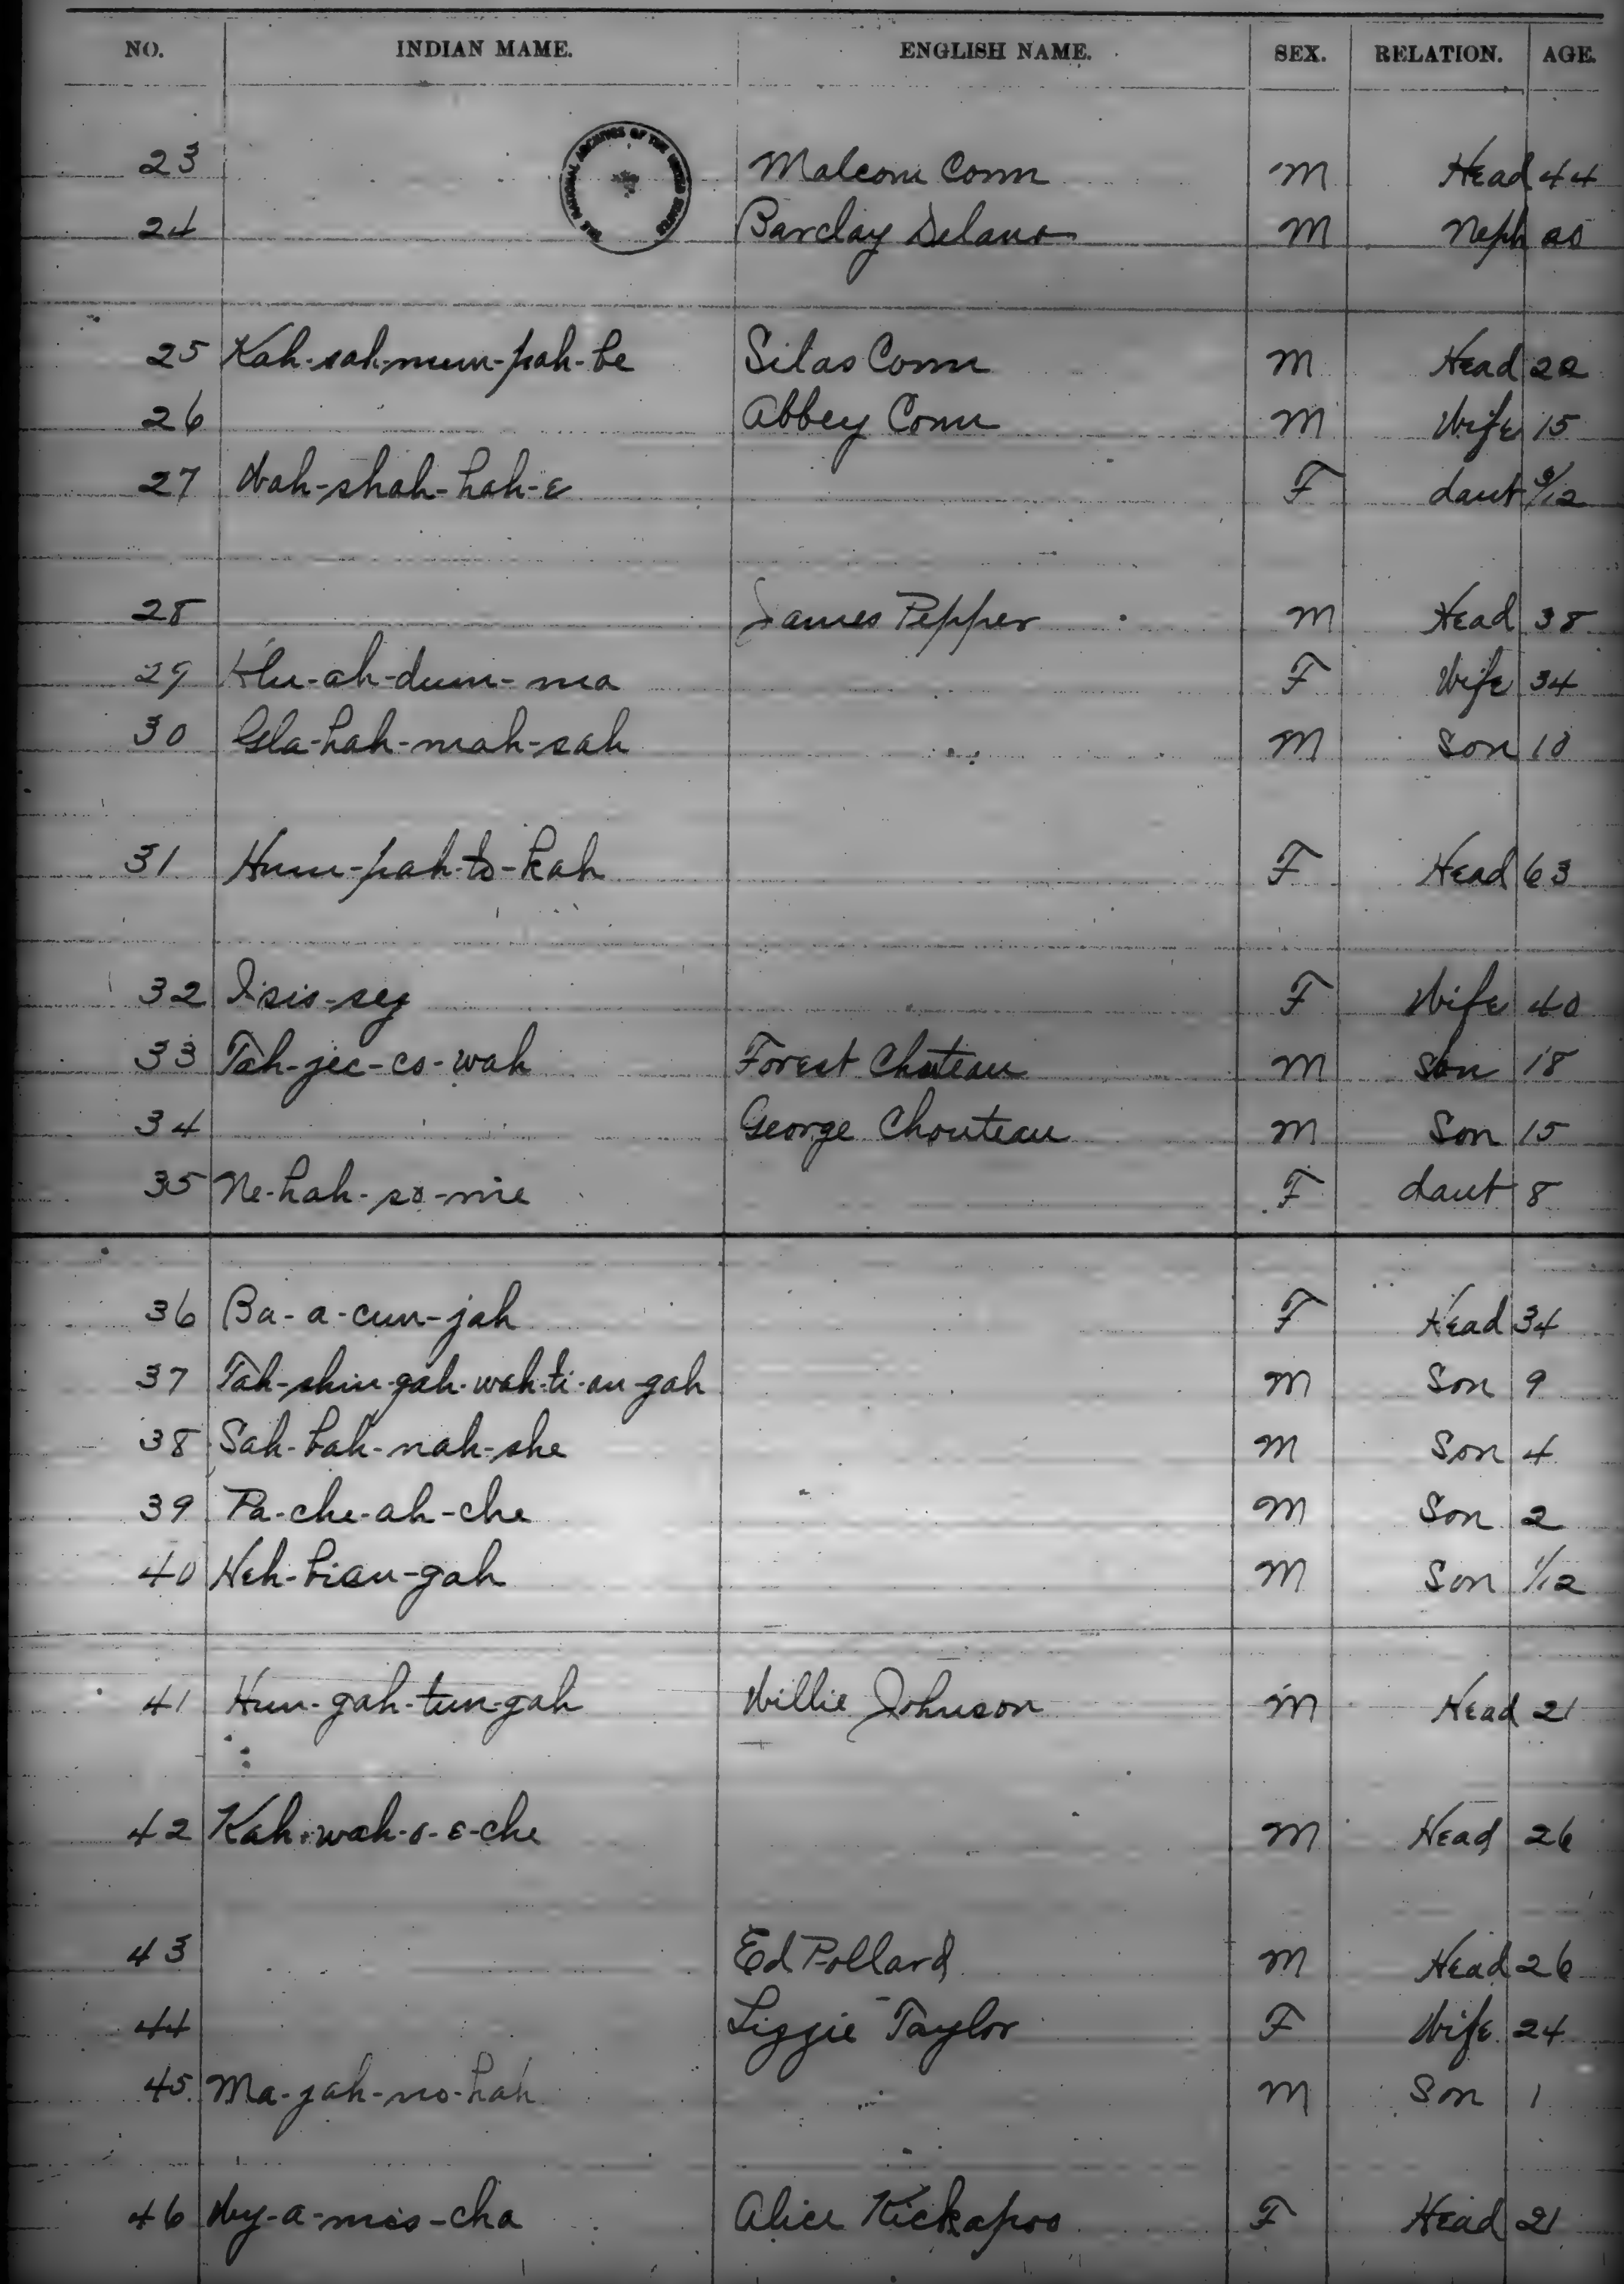 NO. INDIAN MAME. ENGLISH NAME. SEX. RELATION. AGE.
THE NATIONAL ARCHIVES OF THE UNITED STATES
23 Malcom Conn M Head 44
24 Barclay Delano M Neph 20
25 Kah-sah-mun-pah-be Silas Conn M Head 22
26 Abbey Conn M Wife 15
27 Wah-shah-hah-e F daut /12
28 James Pepper M Head 38
29 Klu-ah-dum-ma F Wife 34
30 Gla-hah-mah-sah M Son 10
31 Hum-pah-to-kah F Head 63
32 I-sis-sey F Wife 40
33 Tah-jec-co-wah Forest Choteau M Son 18
34 George Chouteau M Son 15
35 Ne-hah-so-me F daut 8
36 Ba-a-cun-jah F Head 34
37 Tah-shin-gah-wah-ti-an-gah M Son 9
38 Sah-bah-nah-she M Son 4
39 Pa-che-ah-che M Son 2
40 Heh-bian-gah M Son 1/12
41 Hun-gah-tun-gah Willie Johnson M Head 21
42 Kah-wah-o-e-che M Head 26
43 Ed Pollard M Head 26
44 Lizzie Taylor F Wife 24
45 Ma-jah-no-hah M Son 1
46 Wy-a-mes-cha Alice Kickapoo F Head 21